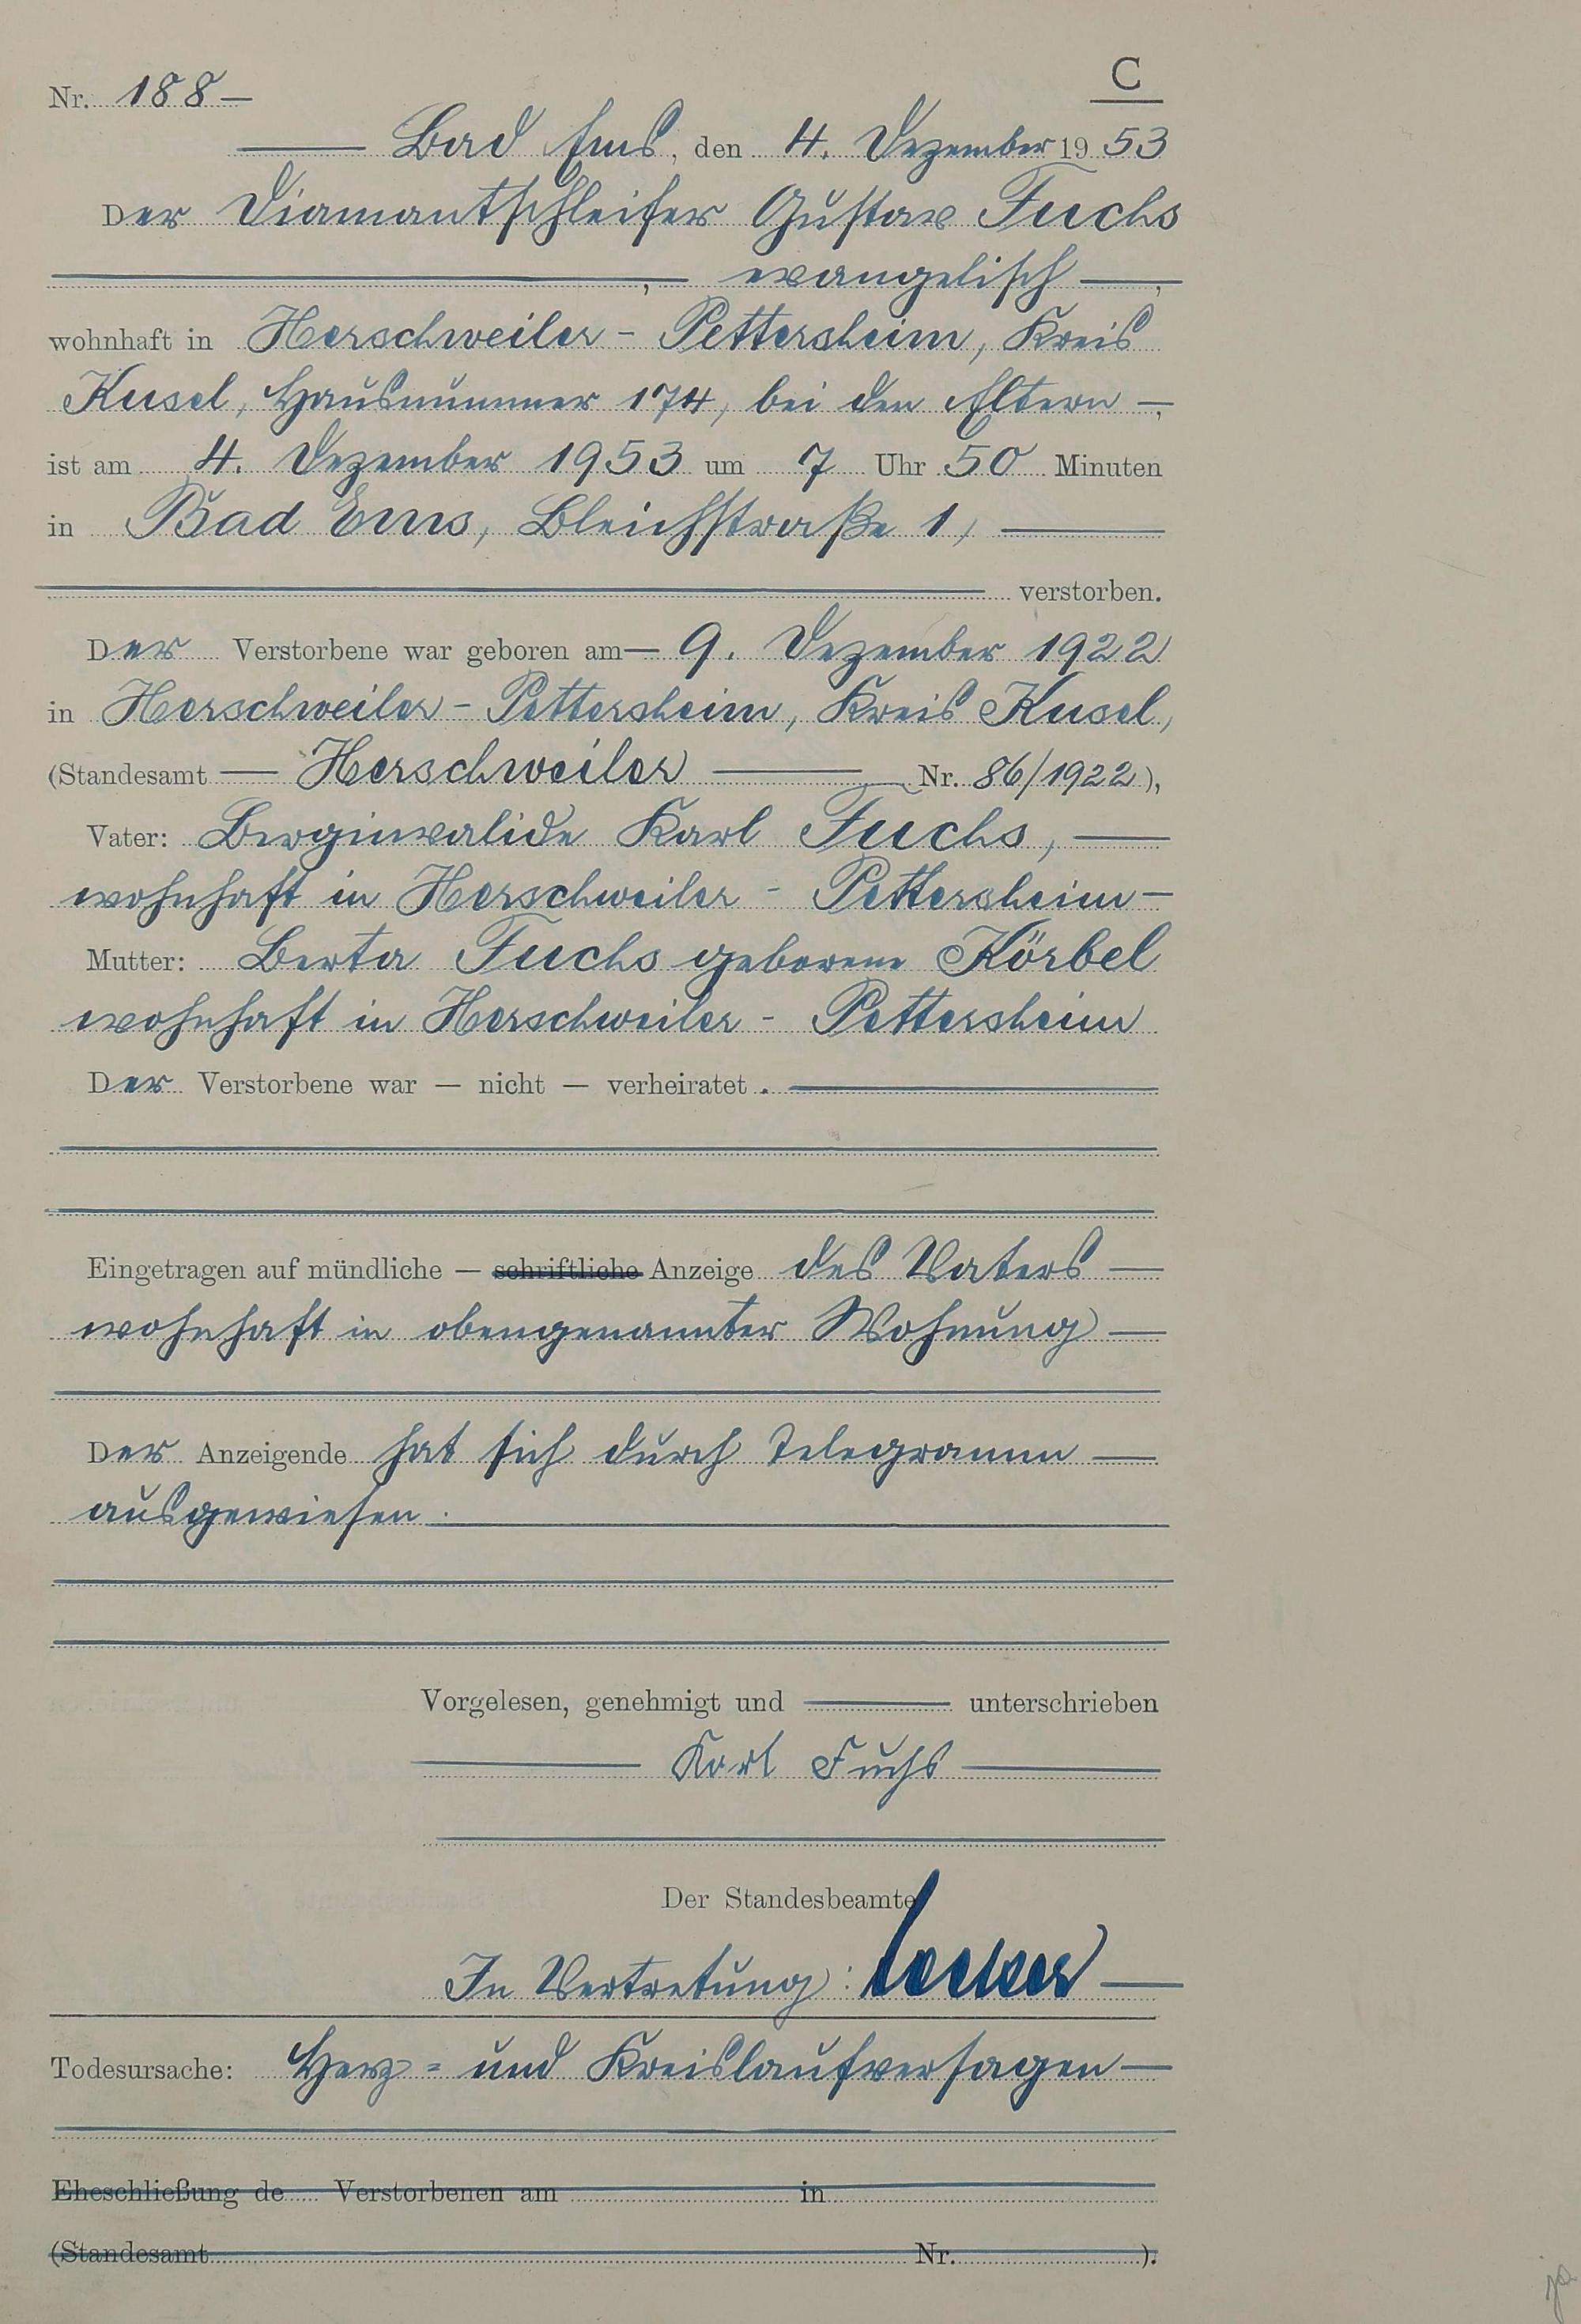 C
Nr. 188 —
— Bad Ems, den 4. Dezember 1953
Der Diamantschleifer Gustav Fuchs
—, — evangelisch —,
wohnhaft in Herschweiler - Pettersheim, Kreis
Kusel, Hausnummer 174, bei den Eltern —,
ist am 4. Dezember 1953 um 7 Uhr 50 Minuten
in Bad Ems, Bleichstraße 1, —
— verstorben.
Der Verstorbene war geboren am — 9. Dezember 1922
in Herschweiler - Pettersheim, Kreis Kusel,
(Standesamt — Herschweiler — Nr. 86/1922),
Vater: Berginvalide Karl Fuchs, —
wohnhaft in Herschweiler - Pettersheim —
Mutter: Berta Fuchs geborene Körbel
wohnhaft in Herschweiler - Pettersheim
Der Verstorbene war — nicht — verheiratet. —
Eingetragen auf mündliche — schriftliche Anzeige des Vaters —
wohnhaft in obengenannter Wohnung —
Der Anzeigende hat sich durch Telegramm —
ausgewiesen. —
Vorgelesen, genehmigt und — unterschrieben
— Karl Fuchs —
Der Standesbeamte
In Vertretung: —
Todesursache: Herz= und Kreislaufversagen —
Eheschließung de Verstorbenen am in
(Standesamt Nr. ).